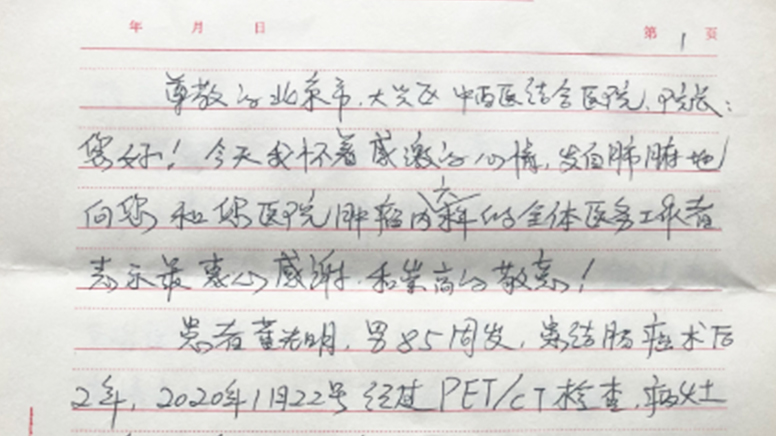 年 月 日 第 1 頁
尊敬的北京市、大兴区中西医结合医院、院长：
您好！今天我怀着感激的心情，发自肺腑地
向您和您医院肿瘤内六科的全体医务工作者
表示最衷心感谢、和崇高的敬意！
患者董光明，男85周岁，患结肠癌术后
2年，2020年1月22号经过PET/CT检查，病灶